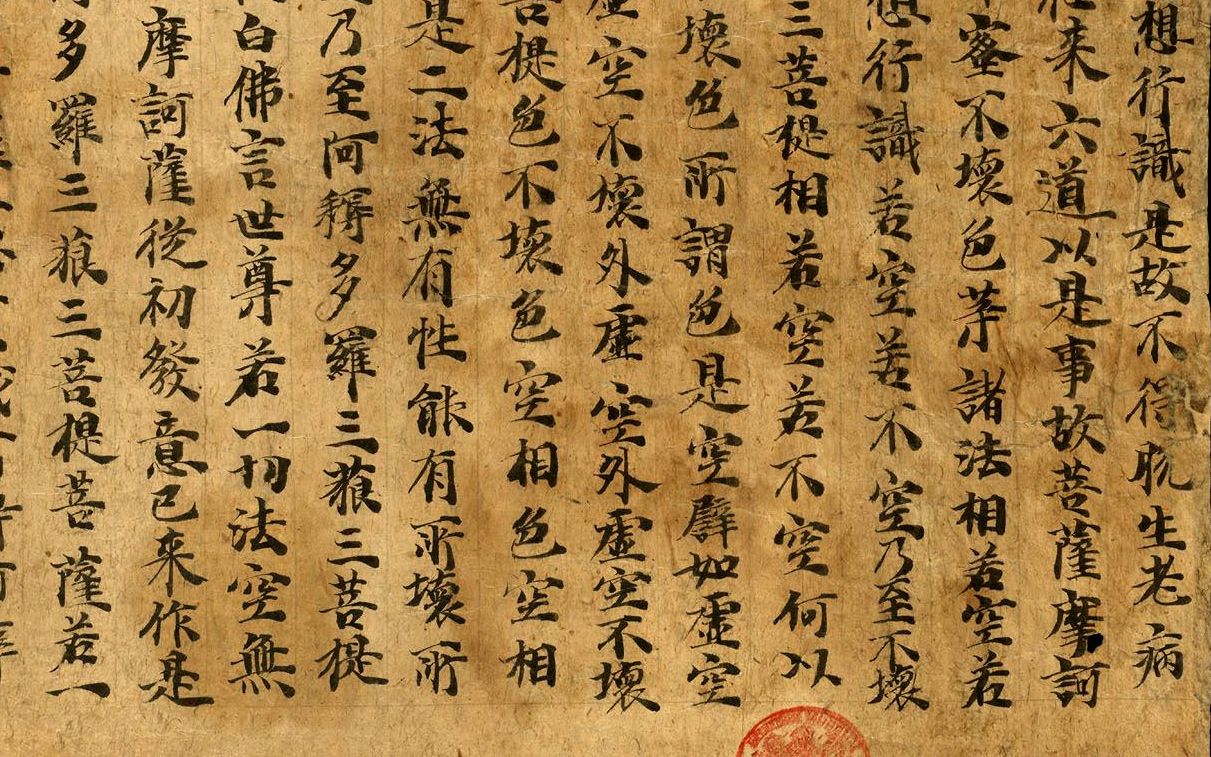 想行識是故不得脫生老病
来六道以是事故菩薩摩訶
蜜不壞色等諸法相若空若
想行識若空若不空乃至不壞
三菩提相若空若不空何以
壞色所謂色是空譬如虛空
虛空不壞外虛空外虛空不壞
菩提色不壞色空相色空相
是二法無有性能有所壞所
乃至阿耨多羅三藐三菩提
白佛言世尊若一切法空無
摩訶薩從初發意已来作是
多羅三藐三菩提菩薩若一